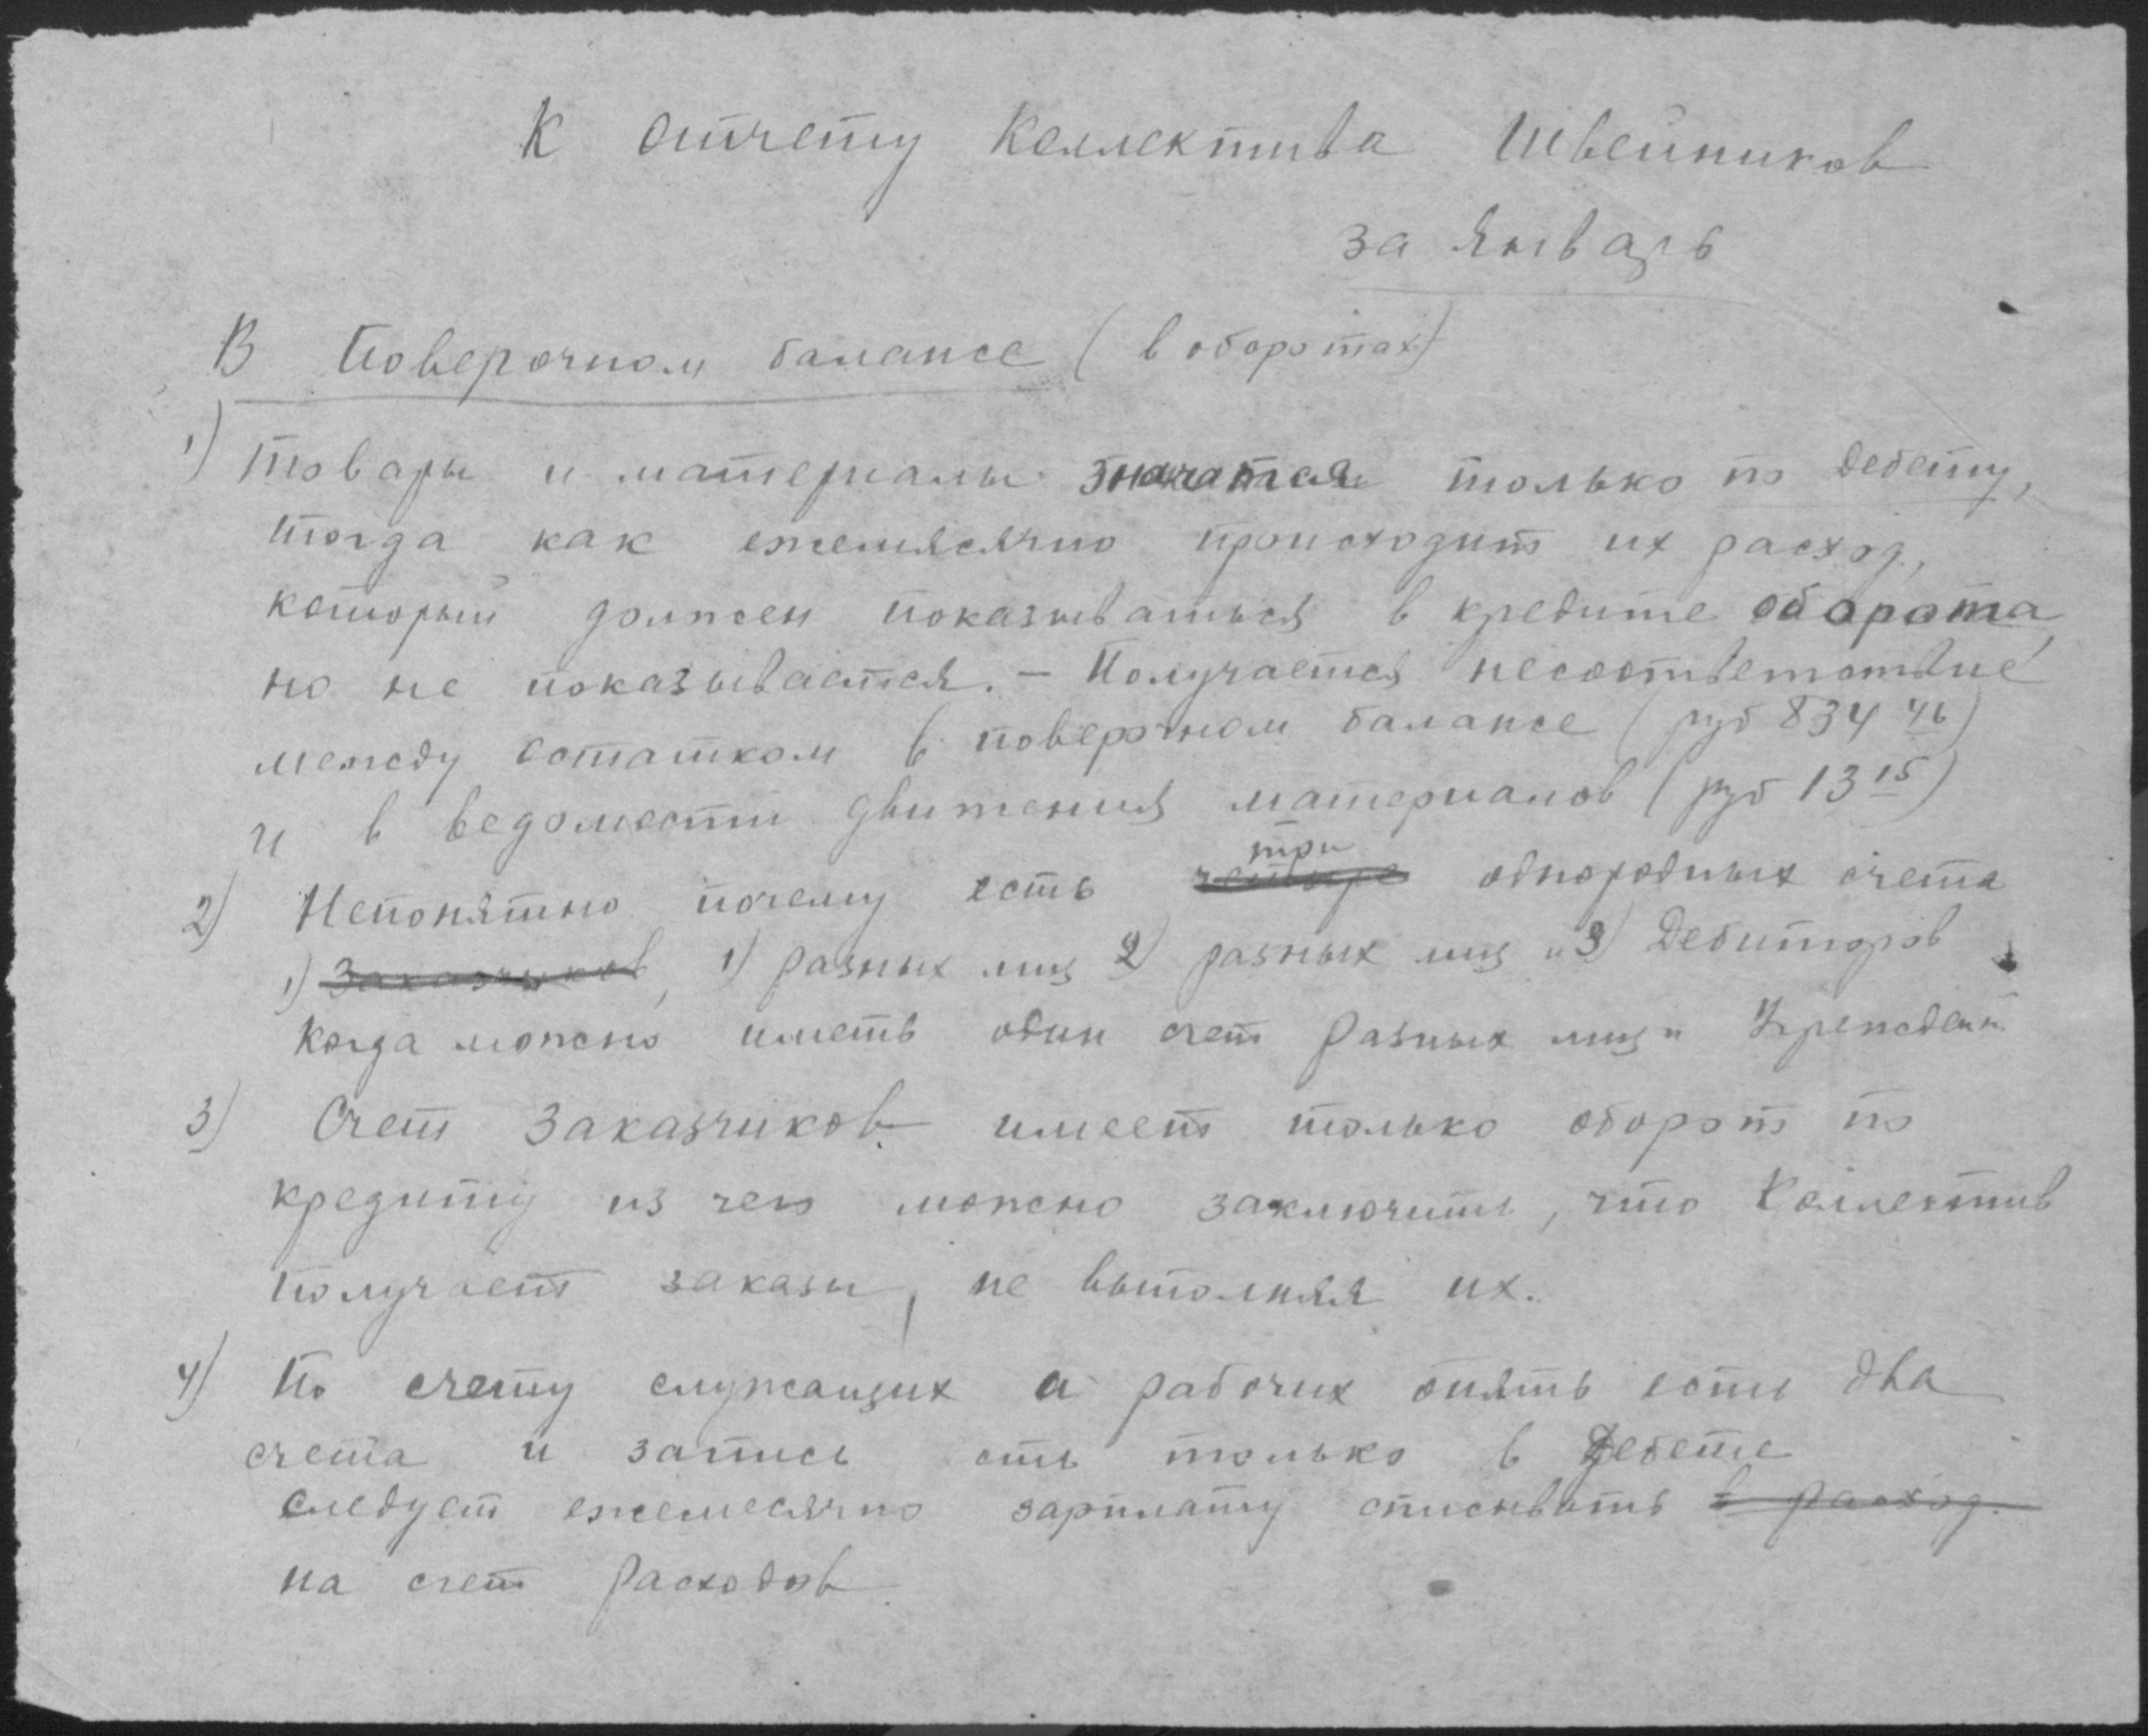 К отчету Коллектива Швейников
за Январь
В Поверочном балансе (в оборотах)
1) Товары и материалы значатся только по дебету,
тогда как ежемясячно происходит их расход,
который должен показываться в кредите оборота
но не показывается. – Получается несоответствие
между остатком в поверочном балансе (руб 834 46)
и в ведомости движения материалов (руб 13 15)
три
2) Непонятно почему есть четыре однородных счета
1) Заказчиков, 1) разных лиц 2) разных лиц и 3) Дебиторов
когда можно иметь один счет Разных лиц и Учрежден.
3) Счет Заказчиков имеет только оборот по
кредиту из чего можно заключить, что Коллектив
получает заказы, не выполняя их.
4) По счету служащих и рабочих опять есть два
счета и запись есть только в Дебете
следует ежемесячно зарплату списывать в расход.
на счет Расходов